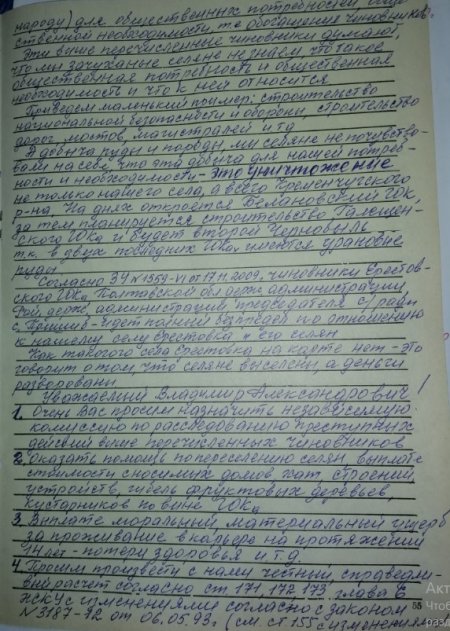 народу) для общественных потребностей
ственной необходимости, т.е. обогащения чиновников.
Эти выше перечисленные чиновники думают,
что мы зачуханые селяне не знаем, что такое
общественная потребность и общественная
необходимость и что к ней относится
Приведем маленький пример: строительство
национальной безопасности и обороны, строительство
дорог, мостов, магистралей и т.д.
А добыча руды и породы, мы селяне не почувство-
вали на себе, что эта добыча для нашей потреб-
ности и необходимости - это уничтожение
не только нашего села, а всего Кременчугского
р-на. На днях откроется Белановский ГОК,
за тем планируется строительство Галещен-
ского ГОКа и будет второй Чернобыль
т.к. в двух последних ГОКах имеются урановые
руды.
Согласно ЗУ №1559-VI от 17.11.2009. чиновники Еристов-
ского ГОКа, Полтавской обл держ. администрации,
Рай. держ. администрации председателя с/рады
с. идет полный беспредел по отношению
к нашему селу Еристовка и его селян
Как такового села Еристовка на карте нет - это
говорит о том что селяне выселены, а деньги
разворованы.
Уважаемый Владимир Александрович!
1. Очень Вас просим назначить независимую
комиссию по расследованию преступных
действий выше перечисленных чиновников
2. Оказать помощь по переселению селян, выплате
стоимости сносимых домов хат, строений,
устройств, гибель фруктовых деревьев,
кустарников по вине ГОКа
3. Выплате моральный, материальный ущерб
за проживание в карьере на протяжении
14 лет - потери здоровья и т.д.
4. Просим произвести с нами честный, справедли-
вый расчет согласно ст 171, 172, 173 глава 6
ЖКУ с изменениями согласно с законом 55
№3187-92 от 06.05.93. (см. ст 155 с изменениями